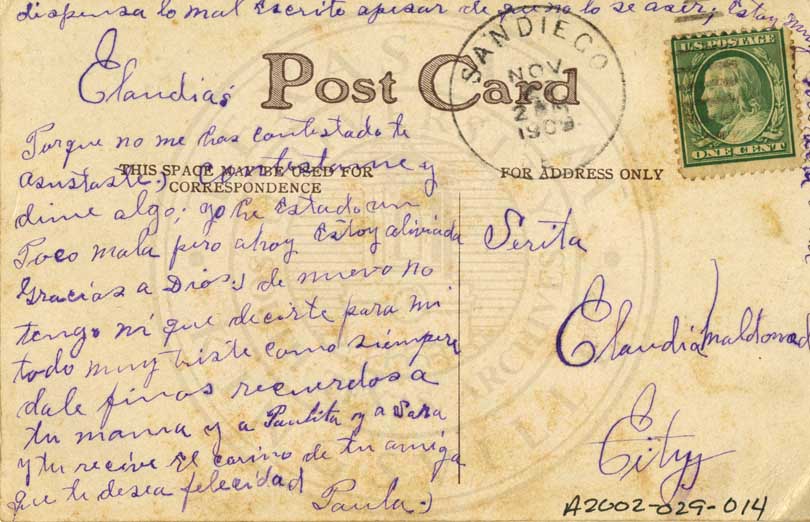 dispensa lo mal Escrito apesar de que no lo se aser; Estoy muy
Post Card
SAN DIEGO
NOV
2
1909
U.S. POSTAGE
ONE CENT
Claudia:
Porque no me has contestado te
asustaste:) Contestame y
THIS SPACE MAY BE USED FOR
CORRESPONDENCE
FOR ADDRESS ONLY
dime algo; yo he Estado un
Poco mala pero ahoy Estoy aliviada
Gracias a Dios; de nuevo no
tengo ni que decirte para mi
todo muy triste como siempere
dale finos recuerdos a
tu mama y a Paulita y a Sara
y tu recive El carino de tu amiga
que te desea felecidad
Paula:)
Serita
Claudia Maldonad
City
A2002-029-014